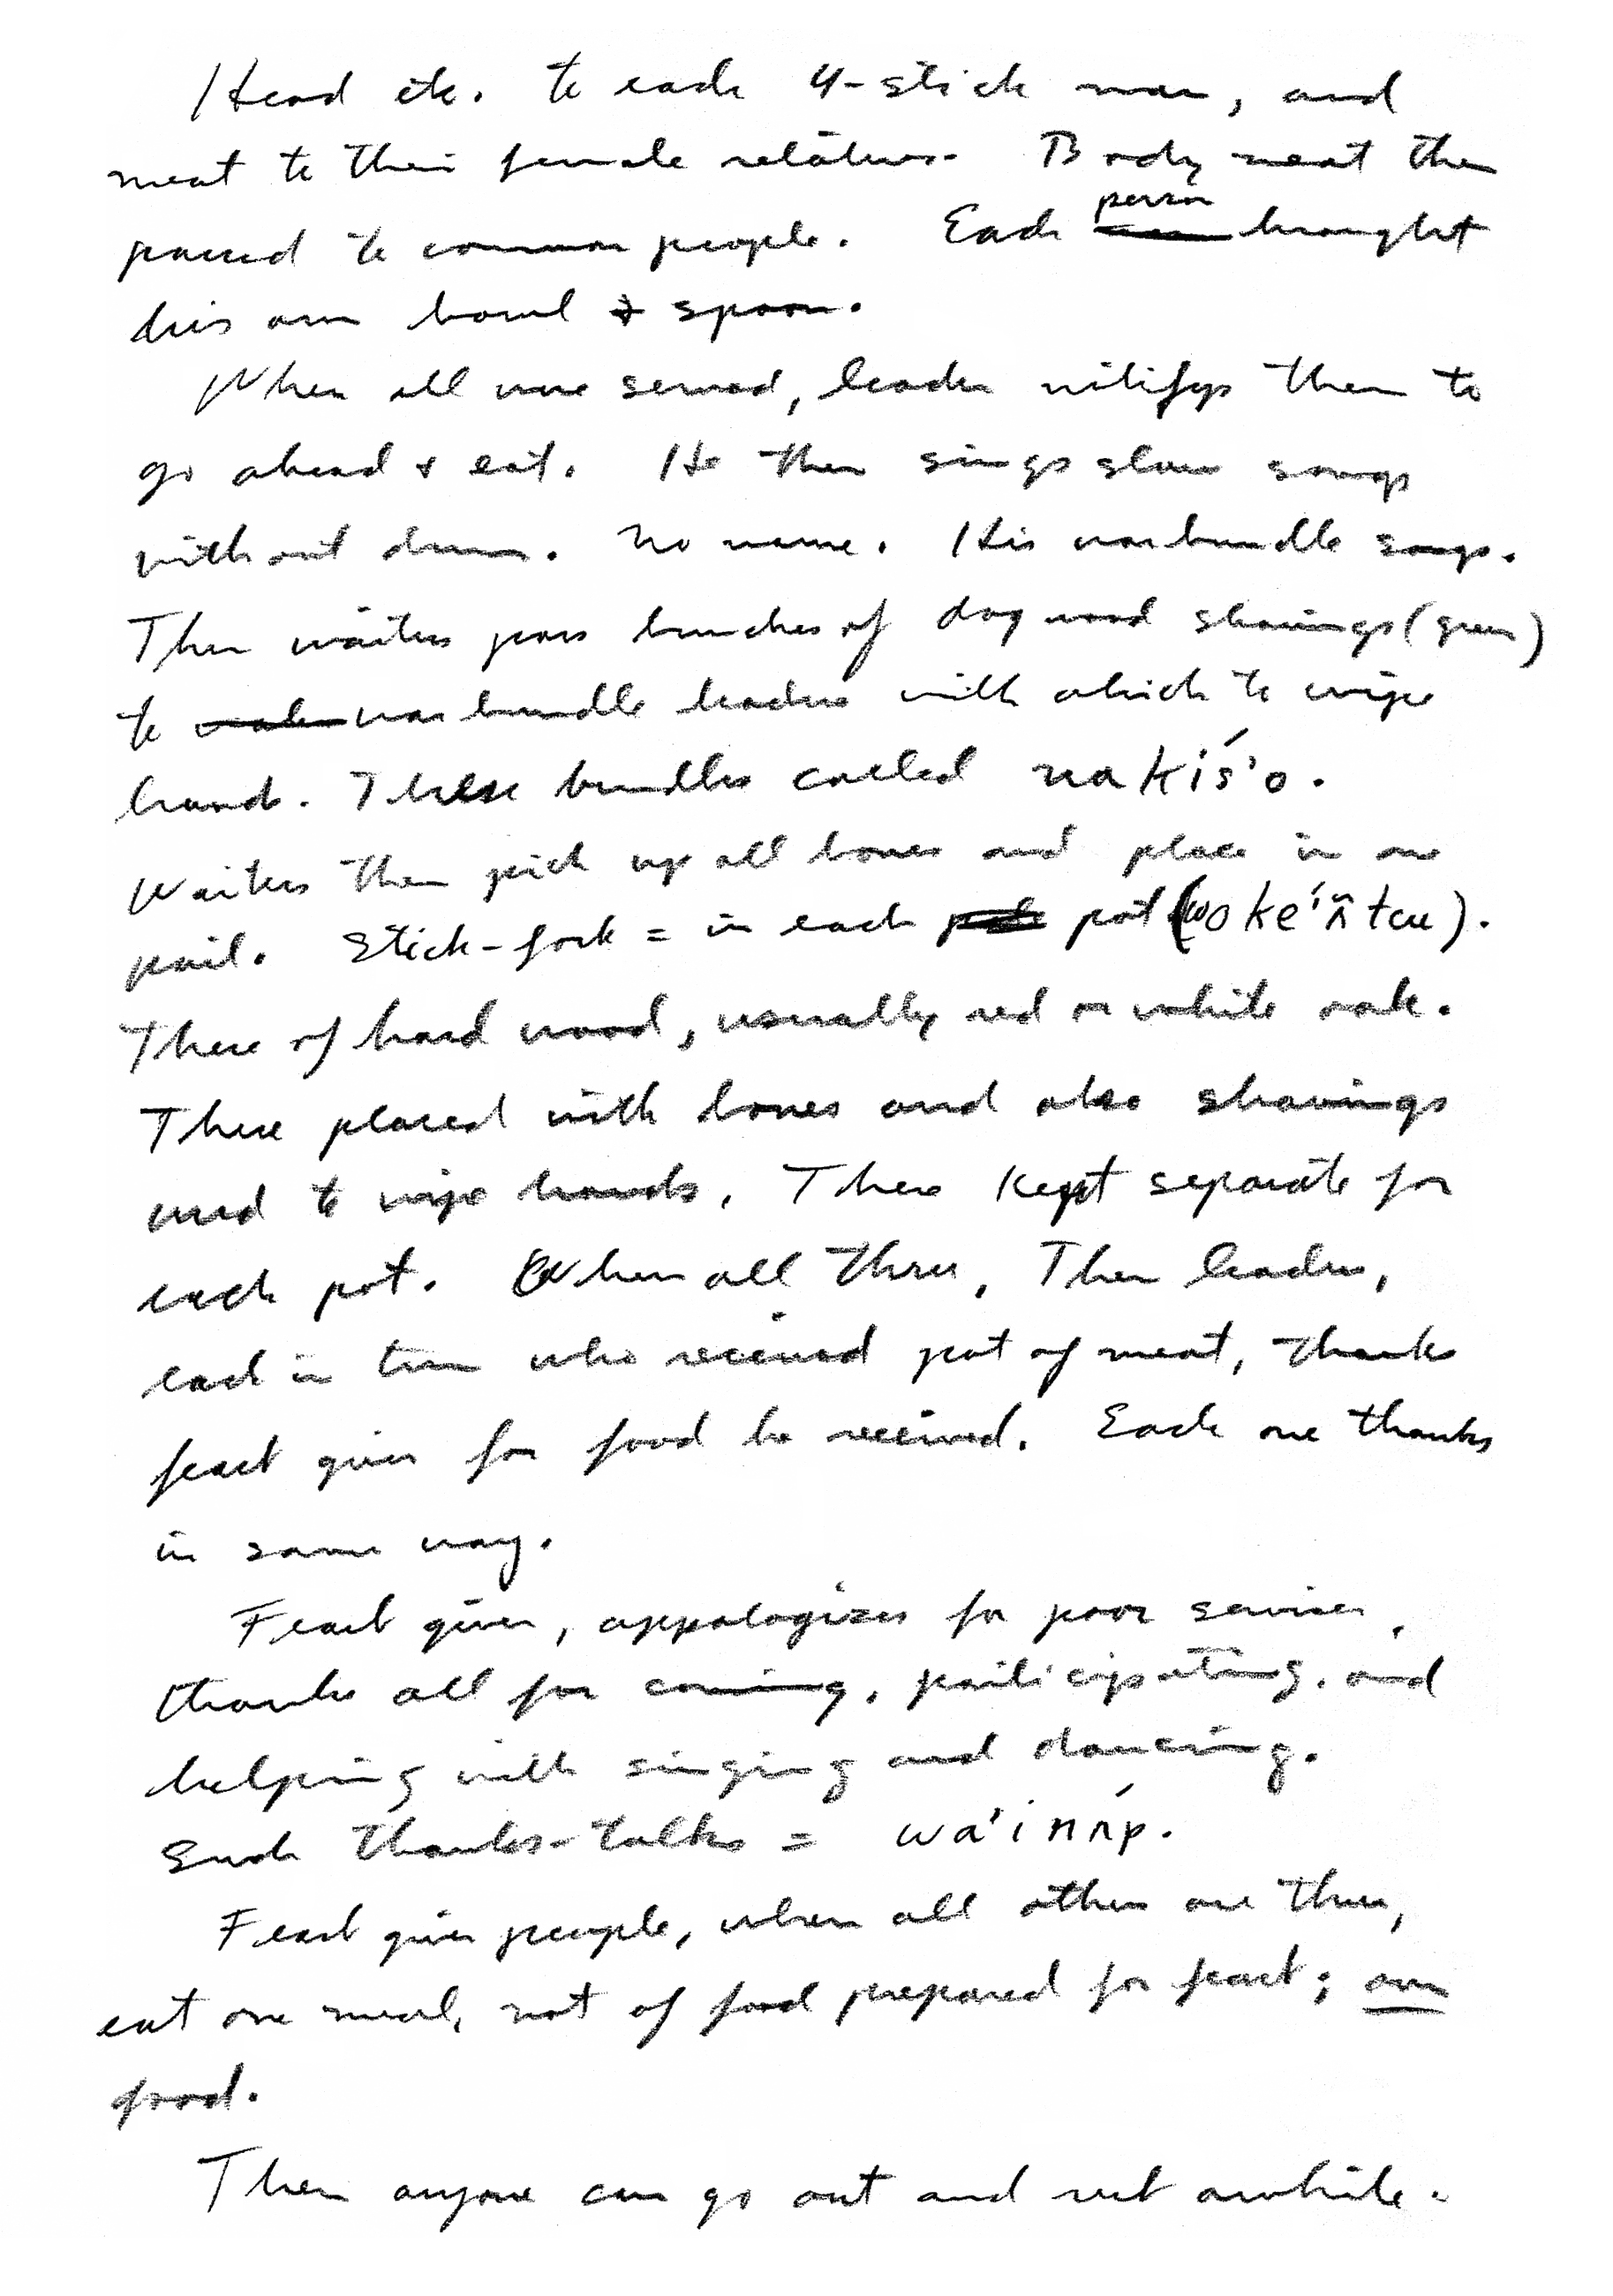 Head etc. to each 4-stick man, and
meat to their female relatives. Body meat then
passed to common people. Each person brought
his own bowl & spoon.
When all were served, leader notifys them to
go ahead & eat. He then sings slow songs
without drum. No name. His warbundle songs.
Then waiters pass bunches of dogwood shavings (green)
to warbundle leaders with which to wipe
hands. These bundles called nakís'o.
Waiters then pick up all bones and place in one
pail. Stick-fork = in each pot (woke'
These of hard wood, usually red or white oak.
These placed with bones and also shavings
used to wipe hands. These kept separate for
each pot. When all thru, Then leaders,
each in turn who received pot of meat, thanks
feast giver for food he received. Each one thanks
in same way.
Feast giver, appologizes for poor services,
thanks all for coming, participating, and
helping with singing and dancing.
Such thanks-talks =
Feast giver people, when all others are thru,
eat one meal, not of food prepared for feast; own
food.
Then anyone can go out and rest awhile.